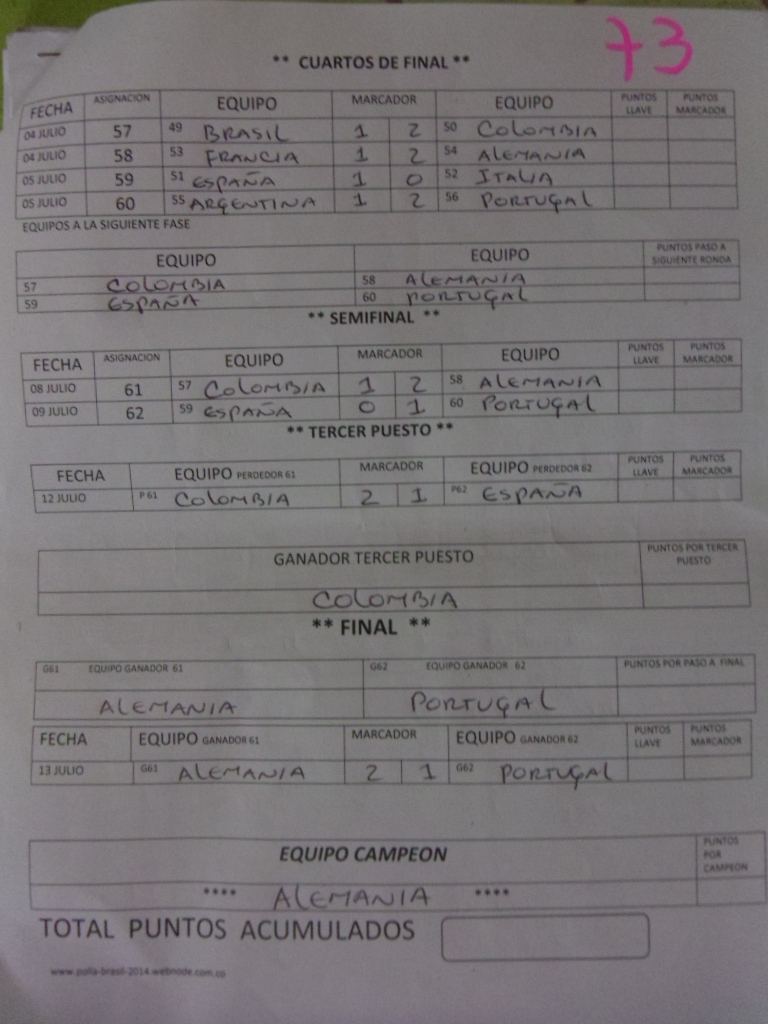 73
** CUARTOS DE FINAL **
FECHA ASIGNACION EQUIPO MARCADOR EQUIPO PUNTOS LLAVE PUNTOS MARCADOR
04 JULIO 57 49 BRASIL 1 2 50 COLOMBIA
04 JULIO 58 53 FRANCIA 1 2 54 ALEMANIA
05 JULIO 59 51 ESPAÑA 1 0 52 ITALIA
05 JULIO 60 55 ARGENTINA 1 2 56 PORTUGAL
EQUIPOS A LA SIGUIENTE FASE
EQUIPO EQUIPO PUNTOS PASO A SIGUIENTE RONDA
57 COLOMBIA 58 ALEMANIA
59 ESPAÑA 60 PORTUGAL
** SEMIFINAL **
FECHA ASIGNACION EQUIPO MARCADOR EQUIPO PUNTOS LLAVE PUNTOS MARCADOR
08 JULIO 61 57 COLOMBIA 1 2 58 ALEMANIA
09 JULIO 62 59 ESPAÑA 0 1 60 PORTUGAL
** TERCER PUESTO **
FECHA EQUIPO PERDEDOR 61 MARCADOR EQUIPO PERDEDOR 62 PUNTOS LLAVE PUNTOS MARCADOR
12 JULIO P 61 COLOMBIA 2 1 P62 ESPAÑA
GANADOR TERCER PUESTO PUNTOS POR TERCER PUESTO
COLOMBIA
** FINAL **
G61 EQUIPO GANADOR 61 G62 EQUIPO GANADOR 62 PUNTOS POR PASO A FINAL
ALEMANIA PORTUGAL
FECHA EQUIPO GANADOR 61 MARCADOR EQUIPO GANADOR 62 PUNTOS LLAVE PUNTOS MARCADOR
13 JULIO G61 ALEMANIA 2 1 G62 PORTUGAL
EQUIPO CAMPEON PUNTOS POR CAMPEON
**** ALEMANIA ****
TOTAL PUNTOS ACUMULADOS
www.polla-brasil-2014.webnode.com.co